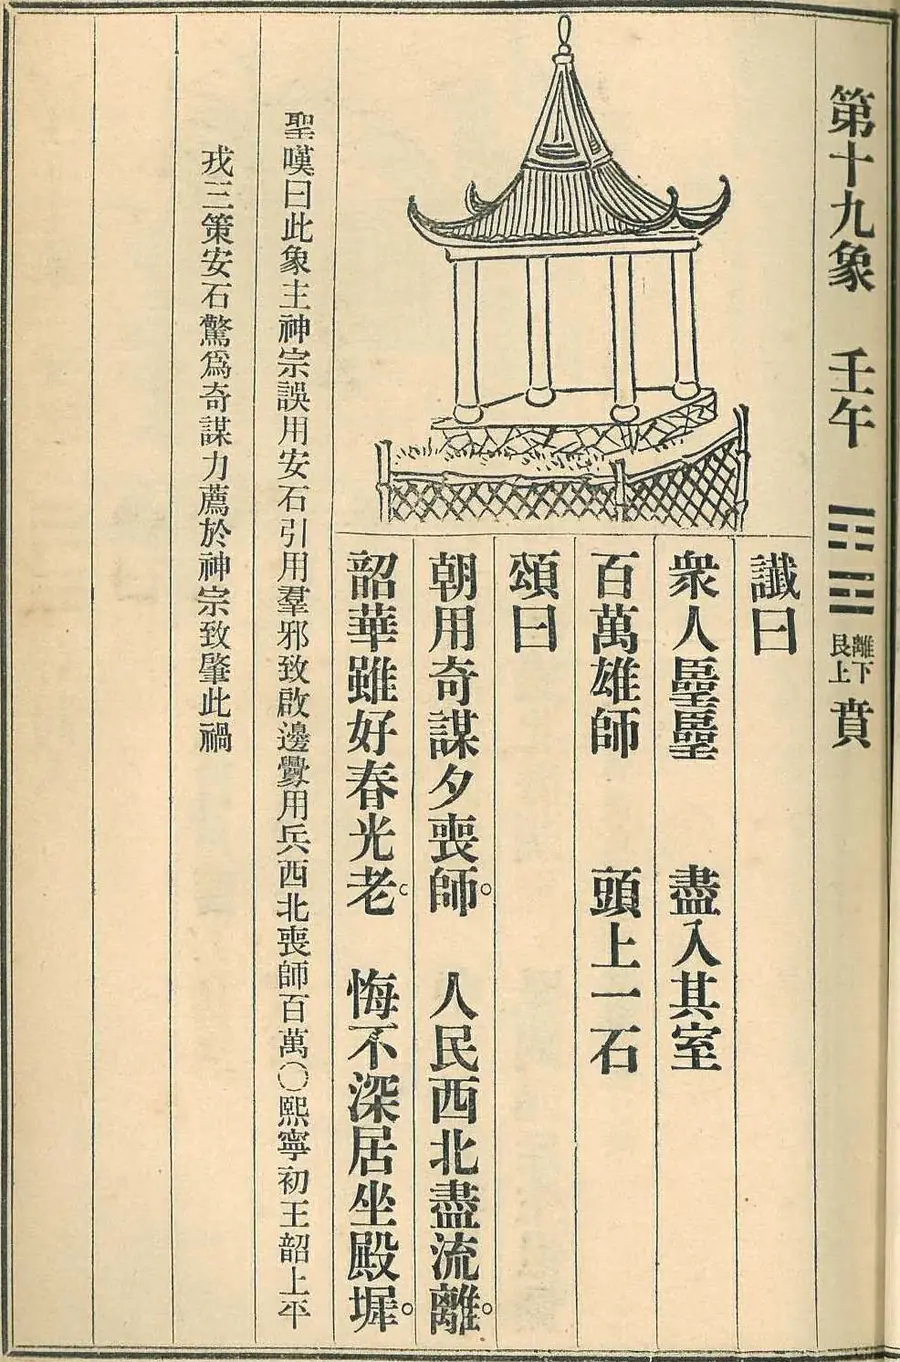 第十九象 壬午 ䷕ 離下艮上 賁
讖曰
衆人囂囂 盡入其室
百萬雄師 頭上一石
頌曰
朝用奇謀夕喪師。 人民西北盡流離。
韶華雖好春光老。 悔不深居坐殿墀。
聖嘆曰此象主神宗誤用安石引用羣邪致啟邊釁用兵西北喪師百萬〇熙寧初王韶上平
戎三策安石驚爲奇謀力薦於神宗致肇此禍